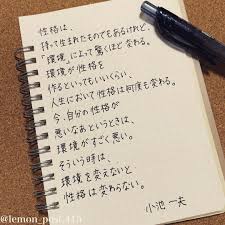 性格は、
持って生まれたものでもあるけれど、
「環境」によって驚くほど変わる。
環境が性格を
作るといってもいいくらい、
人生において性格は何度も変わる。
今、自分の性格が
悪いなあというときは、
環境がすごく悪い。
そういう時は、
環境を変えないと
性格は変わらない。
小池一夫
@lemon_post.415